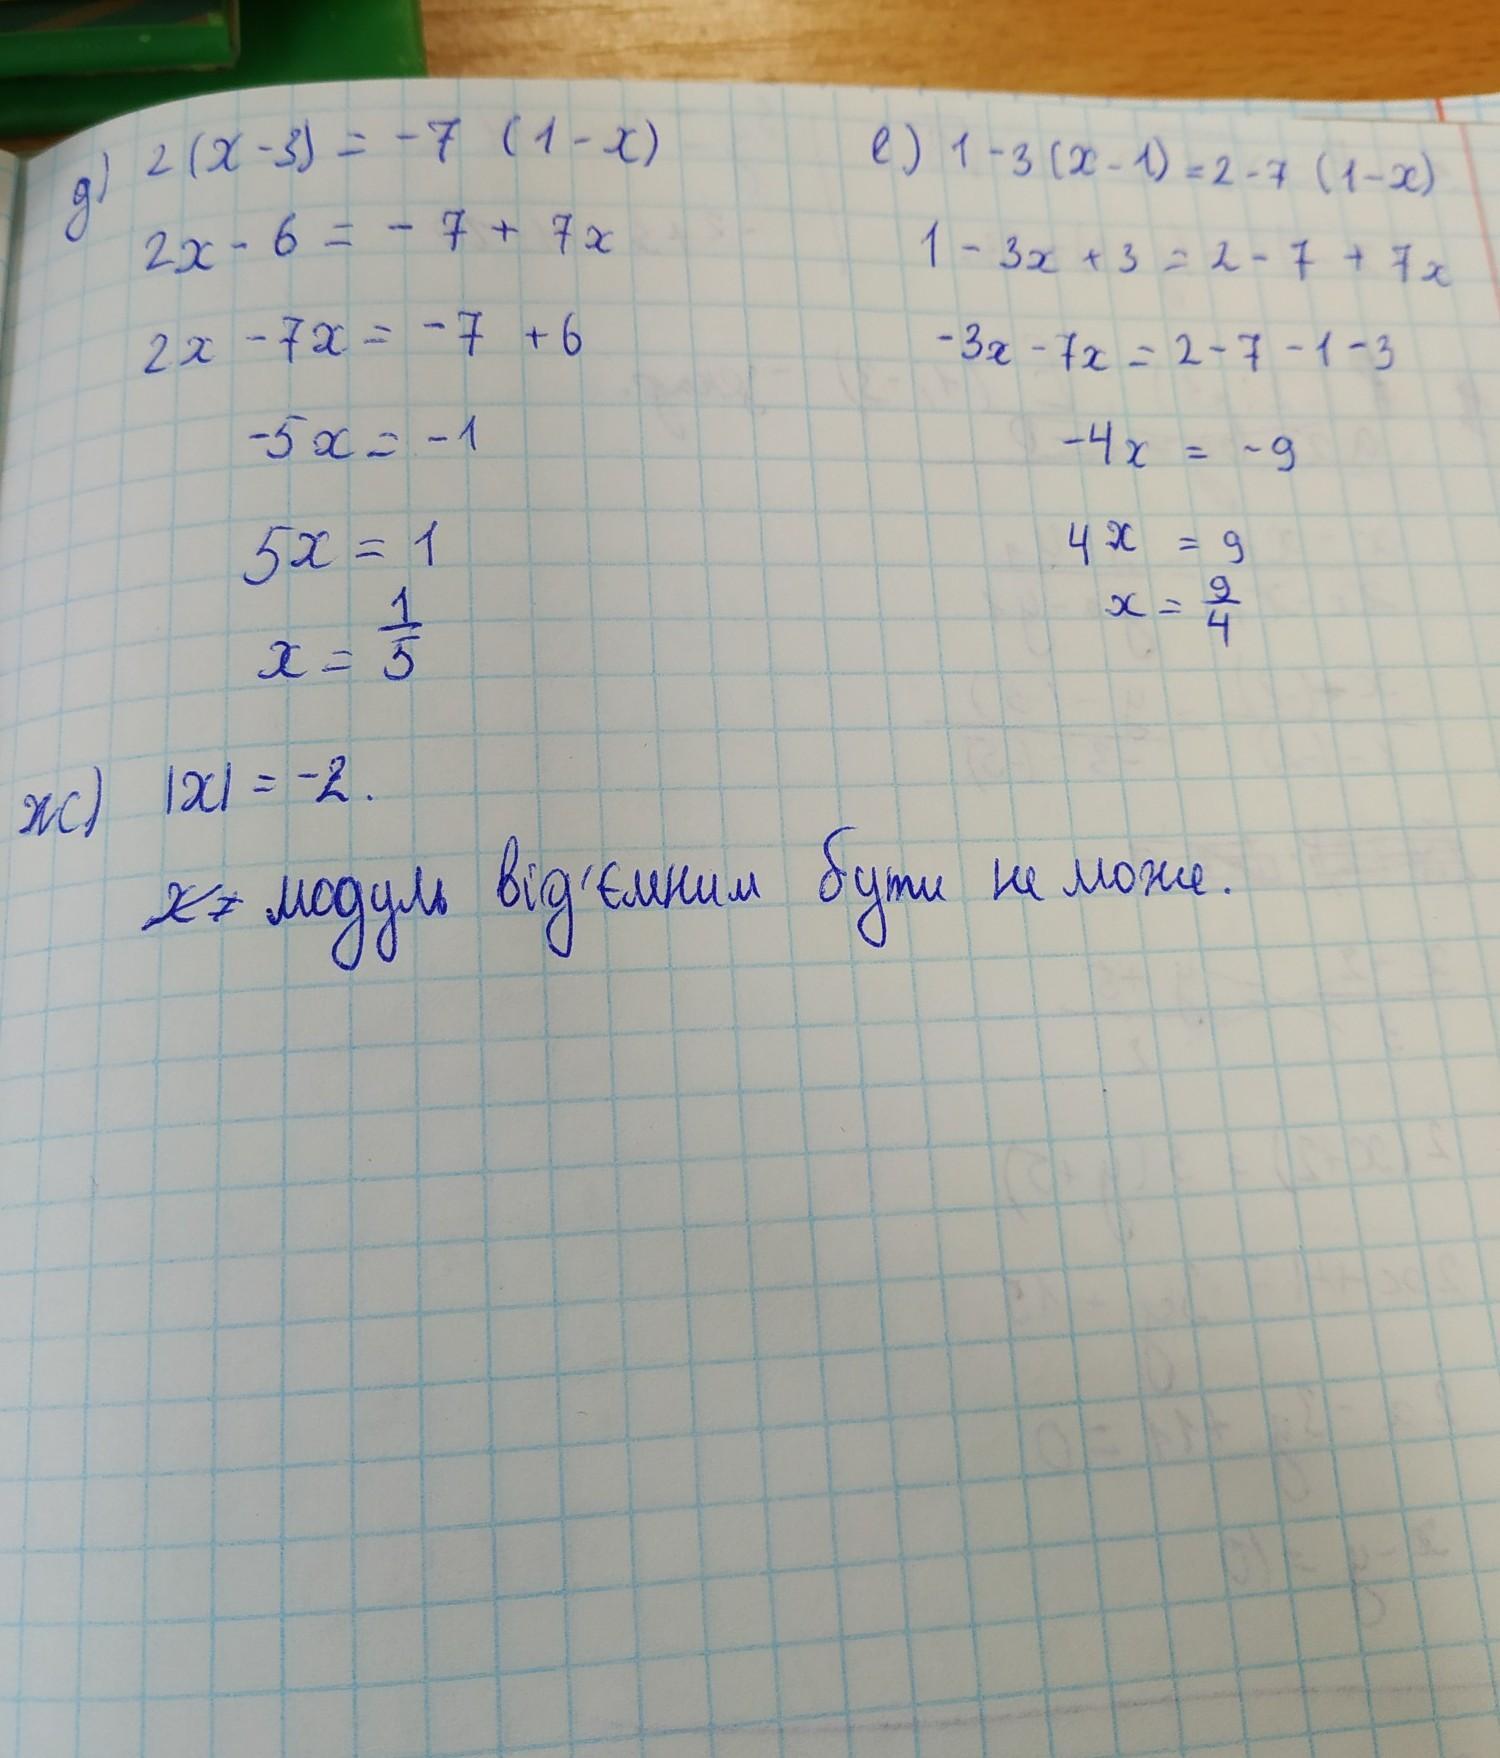 д) 2(x-3) = -7 (1-x)
2x - 6 = -7 + 7x
2x - 7x = -7 + 6
-5x = -1
5x = 1
x = 1/5
е) 1-3(x-1)=2-7 (1-x)
1 - 3x + 3 = 2 - 7 + 7x
-3x - 7x = 2 - 7 - 1 - 3
-4x = -9
4x = 9
x = 9/4
ж) |x| = -2.
модуль від'ємним бути не може.